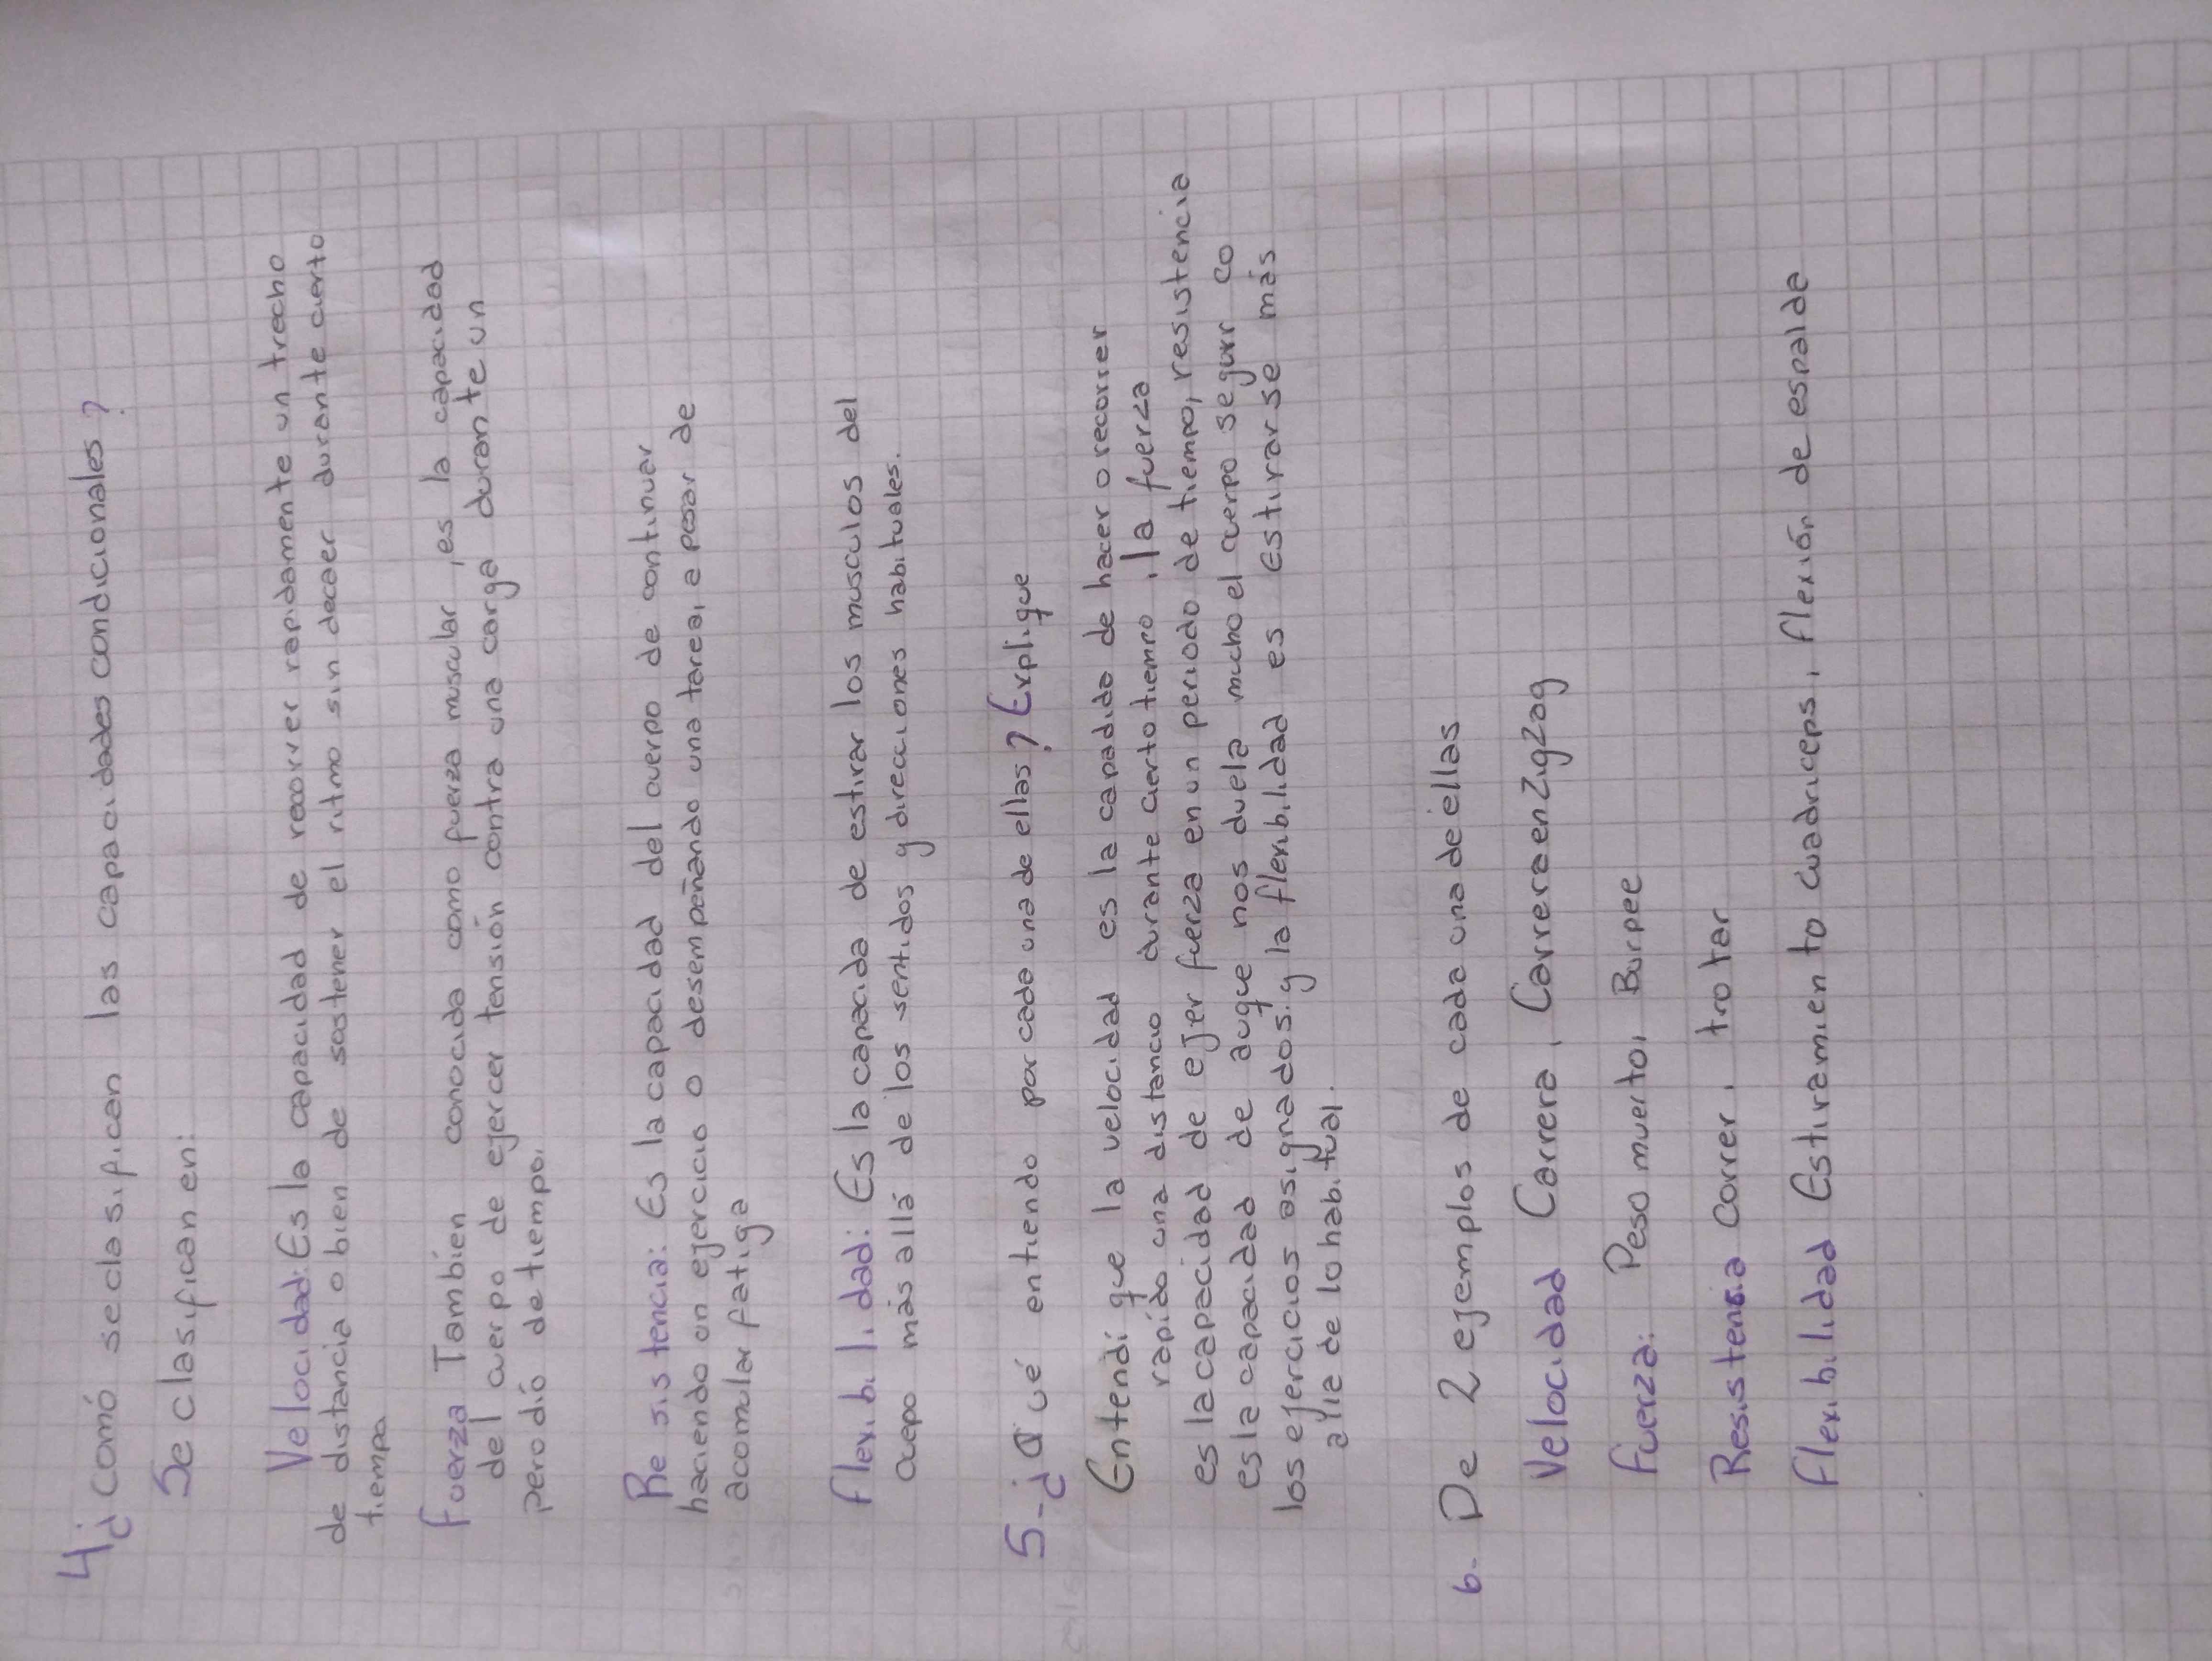 4¿Comó se clasifican las capacidades condicionales?
Se clasifican en:
Velocidad: Es la capacidad de recorrer rapidamente un trecho
de distancia o bien de sostener el ritmo sin decaer durante cierto
tiempo
Fuerza También conocida como fuerza muscular, es la capacidad
del cuerpo de ejercer tensión contra una carga durante un
perodió de tiempo.
Resistencia: Es la capacidad del cuerpo de continuar
haciendo un ejercicio o desempeñando una tarea, a pesar de
acomular fatiga
flexibilidad: Es la capacida de estirar los musculos del
cuepo más allá de los sentidos y direcciones habituales.
5-¿Qué entiendo por cada una de ellas? Explique
Entendí que la velocidad es la capadida de hacer o recorrer
rapído una distancio durante cierto tiempo, la fuerza
es la capacidad de ejer fuerza en un periodo de tiempo, resistencia
es la capacidad de auque nos duela mucho el cuerpo seguir co
los ejercicios asignados. y la flexibilidad es estirarse más
alla de lo habitual.
6.- De 2 ejemplos de cada una de ellas
Velocidad Carrera, Carrera en Zigzag
Fuerza: Peso muerto, Burpee
Resistensia Correr, trotar
Flexibilidad Estiramiento cuadriceps, flexión de espalda